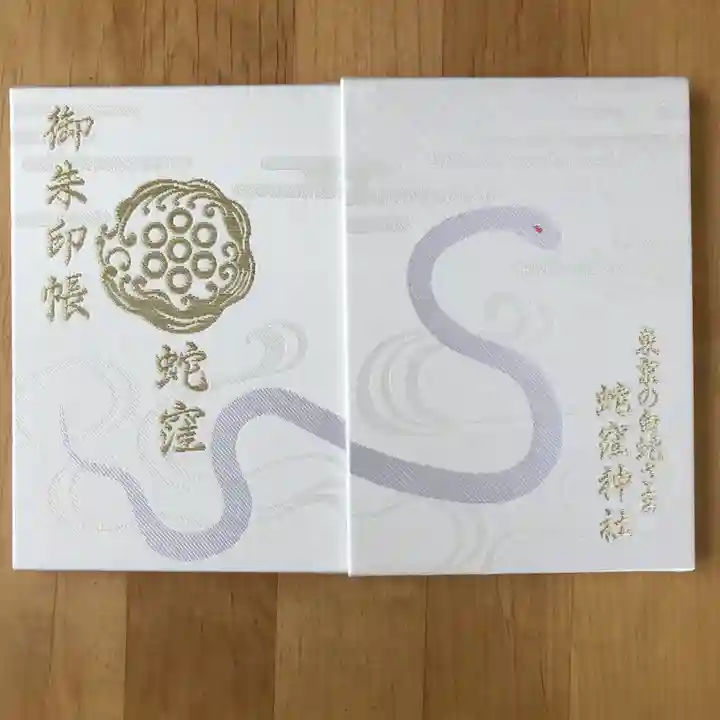 御朱印帳
蛇窪
東京の白蛇さま
蛇窪神社